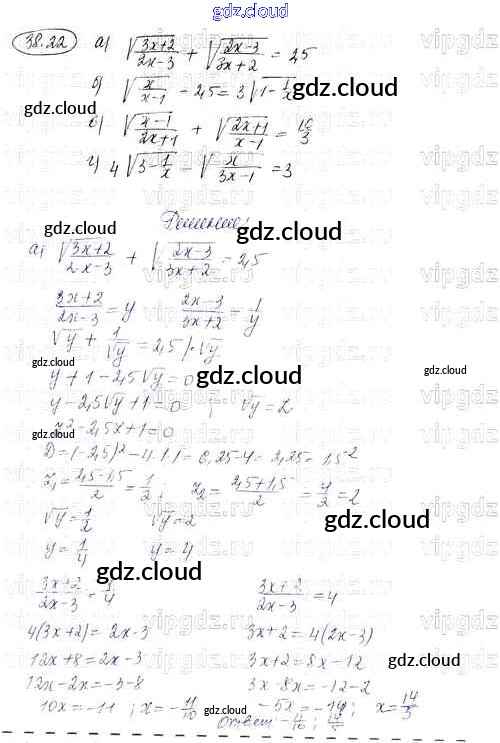 gdz.cloud
38.22 а) √(3x+2)/(2x-3) + √(2x-3)/(3x+2) = 2,5
б) √x/(x-1) - 2,5 = 3√1-1/x
gdz.cloud
в) √(x-1)/(2x+1) + √(2x+1)/(x-1) = 10/3
г) 4√3-1/x - √x/(3x-1) = 3
gdz.cloud
gdz.cloud
Решение:
а) √(3x+2)/(2x-3) + √(2x-3)/(3x+2) = 2,5
gdz.cloud
(3x+2)/(2x-3) = y (2x-3)/(3x+2) = 1/y
√y + 1/√y = 2,5 | · √y
gdz.cloud
y + 1 - 2,5√y = 0
gdz.cloud
gdz.cloud
y - 2,5√y + 1 = 0 ; √y = z
gdz.cloud
z² - 2,5x + 1 = 0
D = (-2,5)² - 4·1·1 = 6,25 - 4 = 2,25 = 1,5²
z₁ = (2,5-1,5)/2 = 1/2 ; z₂ = (2,5+1,5)/2 = 4/2 = 2
gdz.cloud
√y = 1/2 √y = 2
y = 1/4 y = 4
gdz.cloud
(3x+2)/(2x-3) = 1/4 (3x+2)/(2x-3) = 4
gdz.cloud
4(3x+2) = 2x-3 3x+2 = 4(2x-3)
12x+8 = 2x-3 3x+2 = 8x-12
12x-2x = -3-8 3x-8x = -12-2
10x = -11 ; x = -11/10 -5x = -14 ; x = 14/5
gdz.cloud
gdz.cloud
Ответ: -11/10 ; 14/5